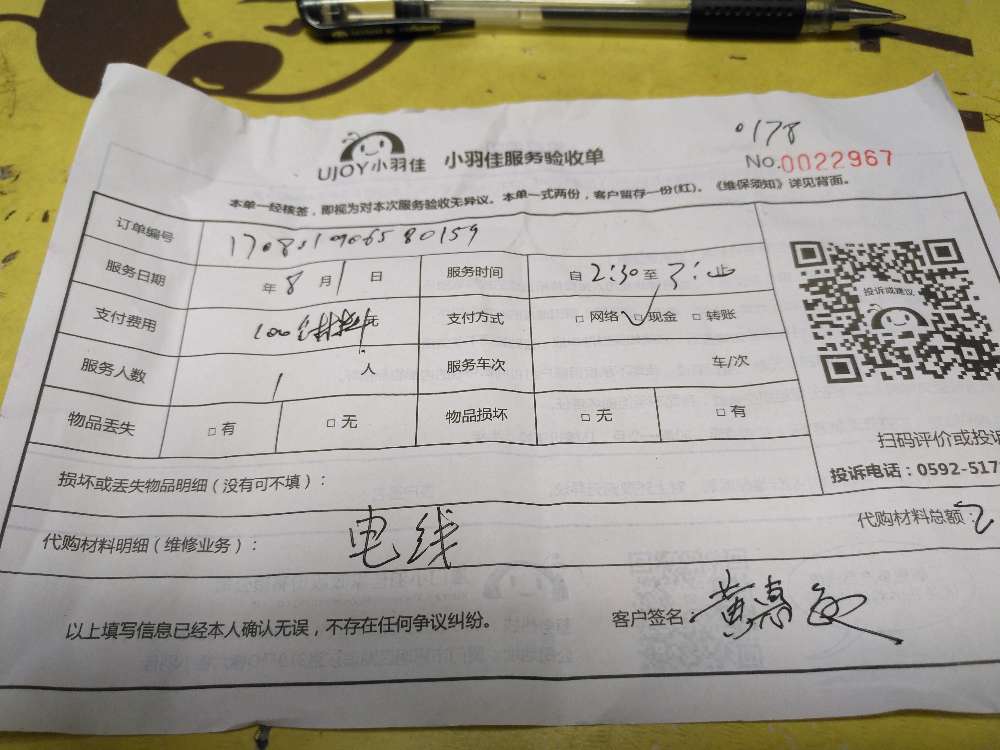 0178
UJOY小羽佳 小羽佳服务验收单 No.0022967
本单一经核签，即视为对本次服务验收无异议。本单一式两份，客户留存一份(红)。《维保须知》详见背面。
订单编号 170831906580159
服务日期 年 8 月 1 日 服务时间 自 2:30 至 3: 止
支付费用 100 元 支付方式 □ 网络 □ 现金 □ 转账
服务人数 1 人 服务车次 车/次
物品丢失 □ 有 □ 无 物品损坏 □ 无 □ 有
投诉或建议
扫码评价或投诉
投诉电话：0592-517
损坏或丢失物品明细（没有可不填）：
代购材料明细（维修业务）： 电线 代购材料总额：
以上填写信息已经本人确认无误，不存在任何争议纠纷。 客户签名：黄惠